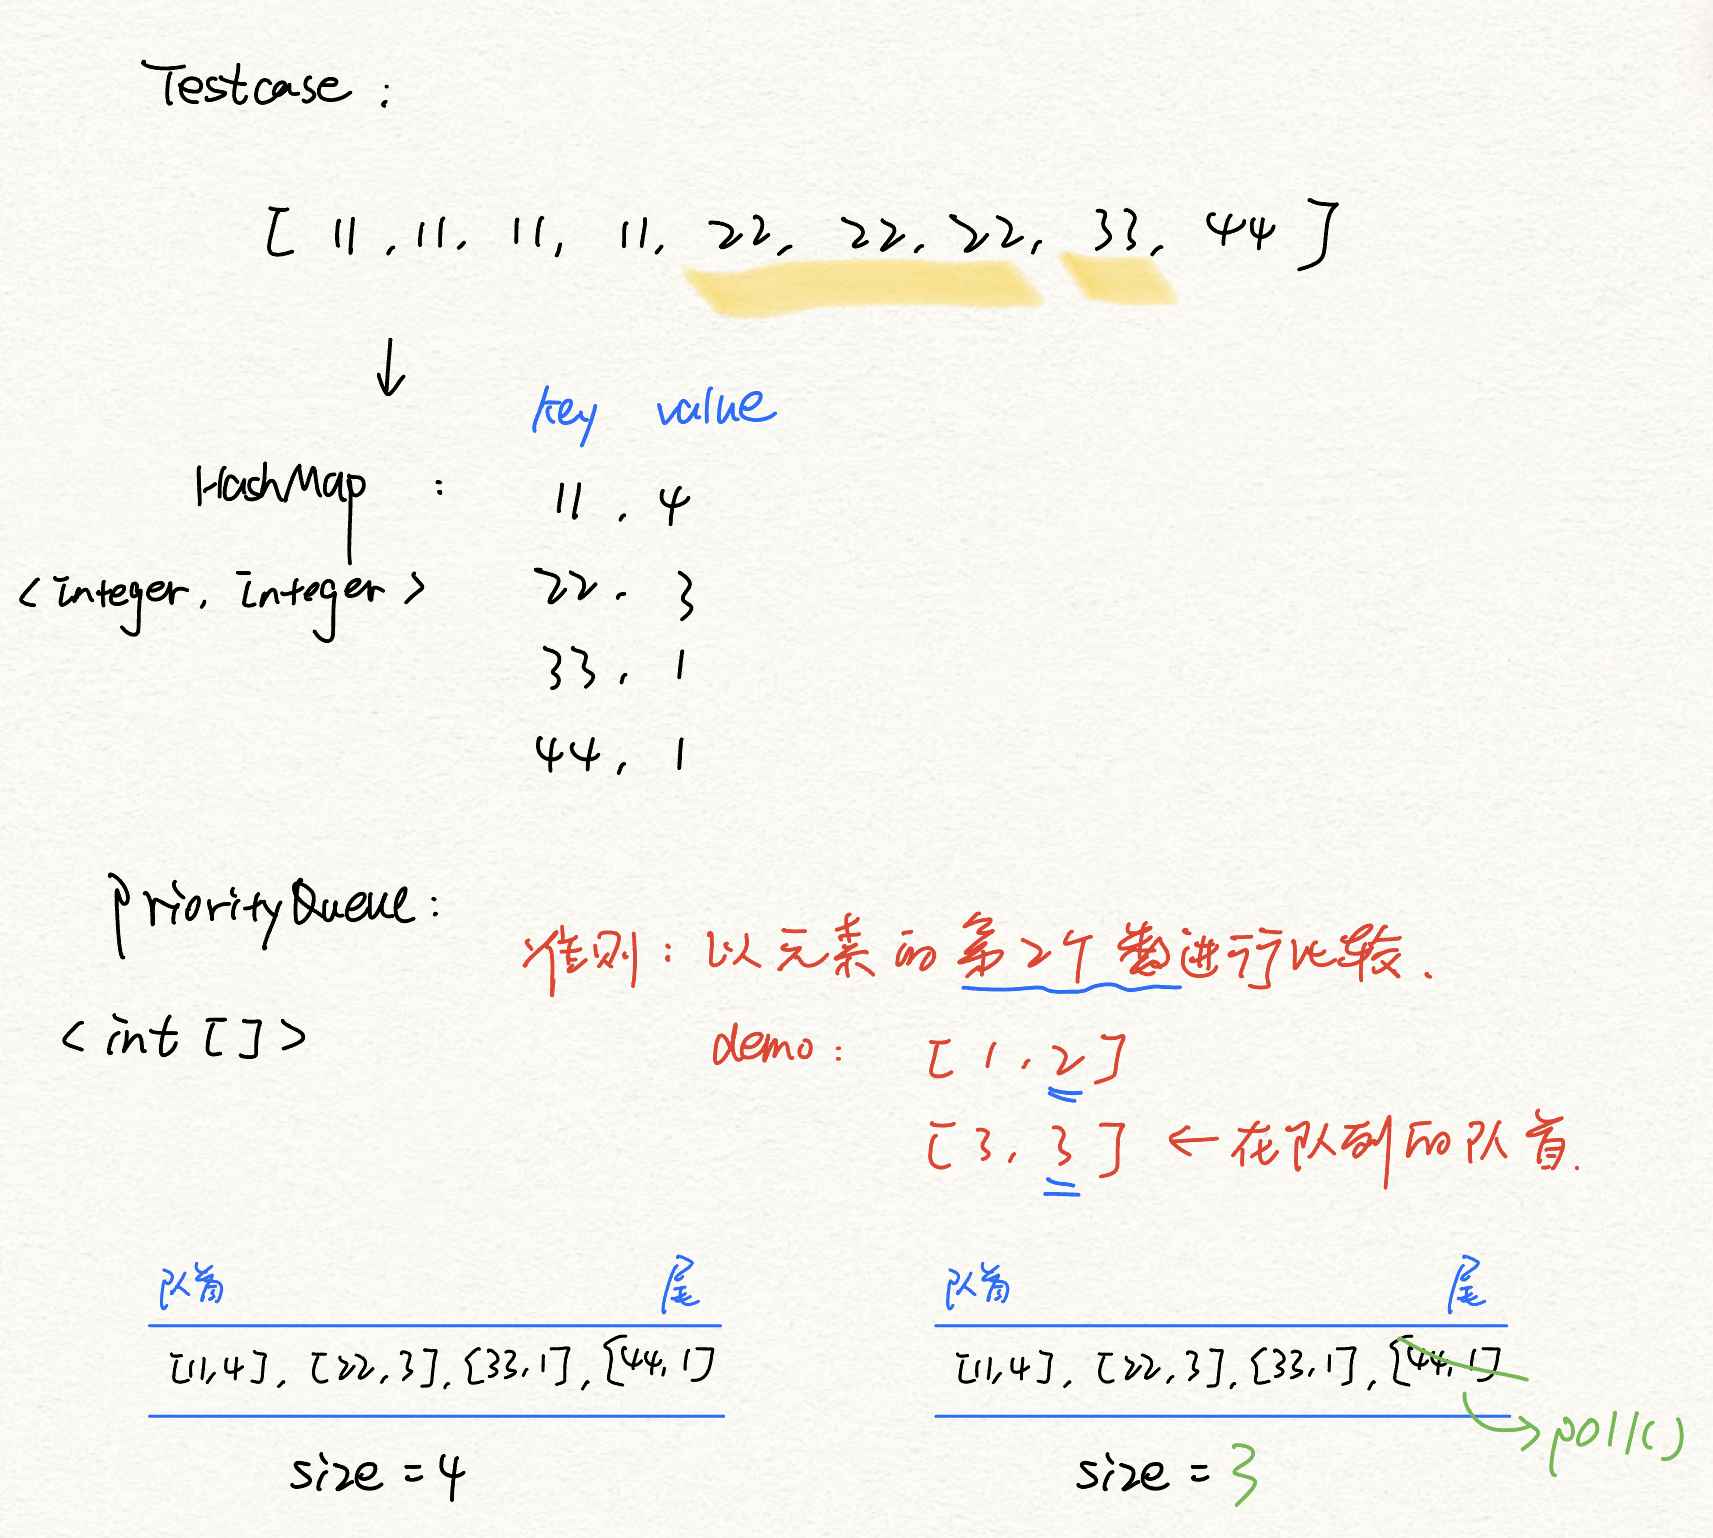 Testcase :
[ 11 , 11, 11, 11, 22, 22, 22, 33, 44 ]
↓
key value
HashMap : 11 , 4
<Integer, Integer> 22, 3
33, 1
44, 1
PriorityQueue :
准则：以元素的第2个数进行比较.
<int []>
demo : [ 1 , 2 ]
[ 3 , 3 ] ← 在队列的队首.
队首 尾
[11,4], [22,3], [33,1], [44,1]
size = 4
队首 尾
[11,4], [22,3], [33,1], [44,1]
→ poll()
size = 3